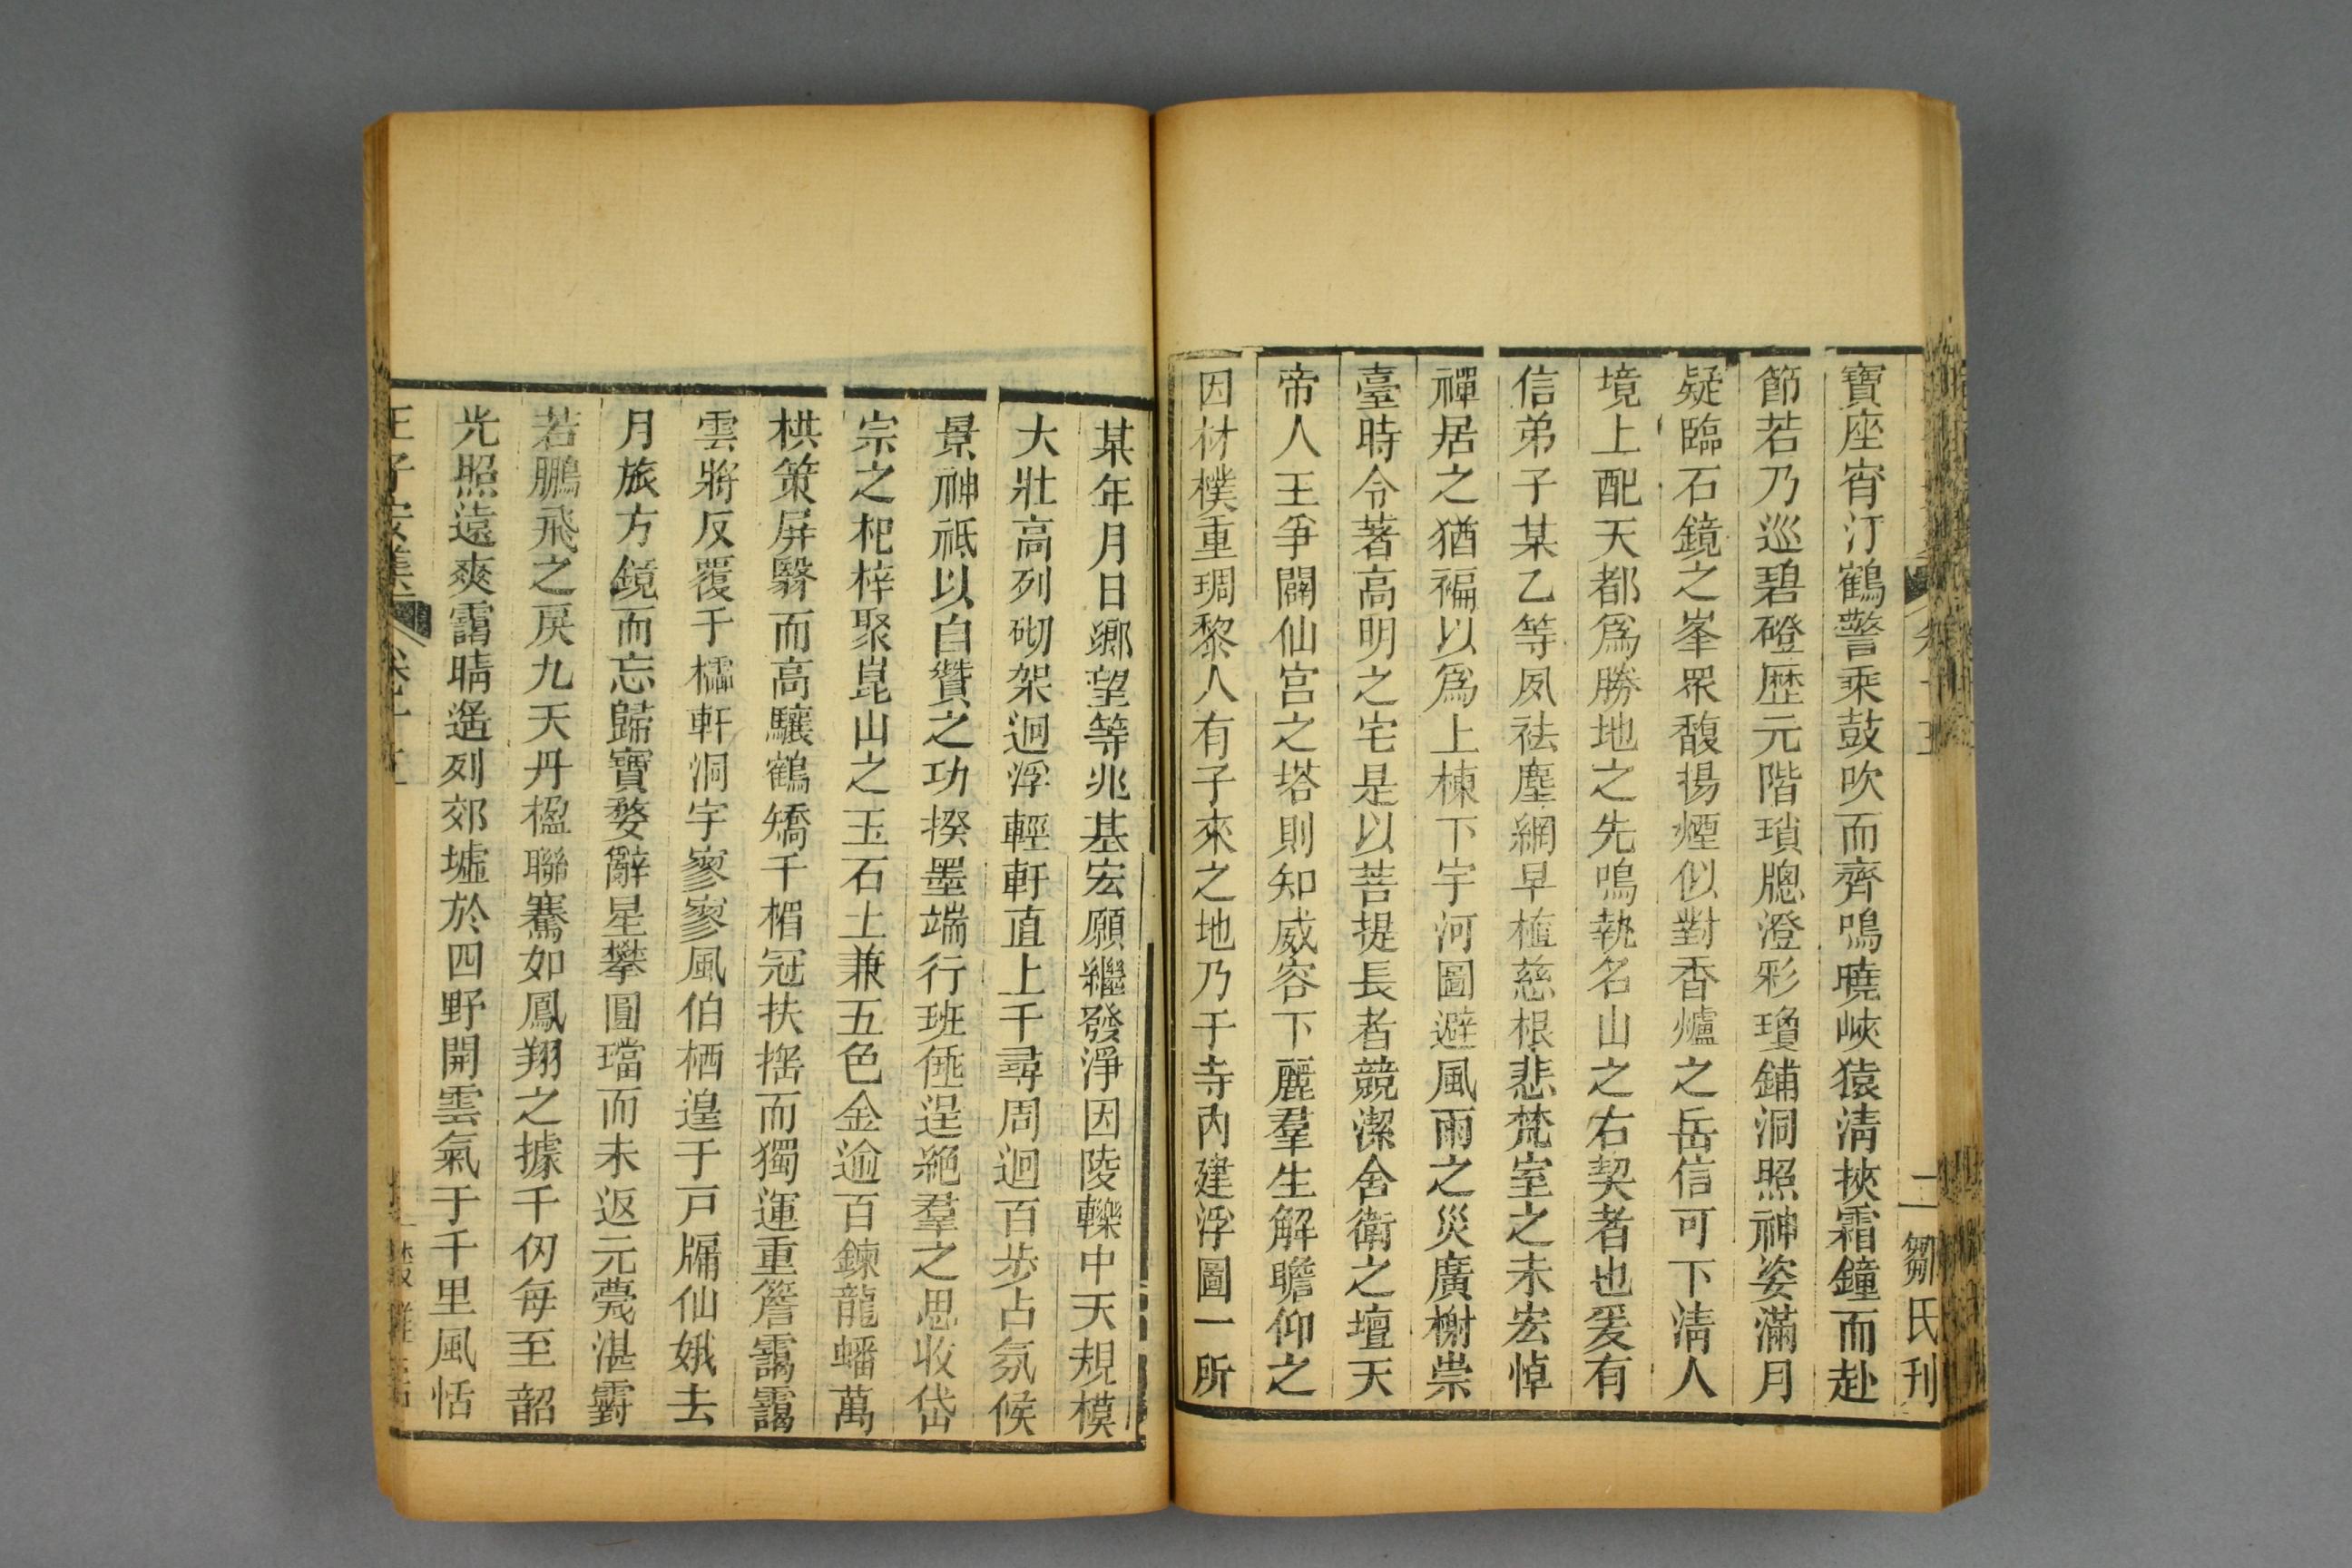 寶座宵汀鶴警乘鼓吹而齊鳴曉峽猿清挾霜鐘而赴
節若乃巡碧磴歷元階瑣牎澄彩瓊鋪洞照神姿滿月
疑臨石鏡之峯眾馥揚煙似對香爐之岳信可下清人
境上配天都爲勝地之先鳴執名山之右契者也爰有
信弟子某乙等夙祛塵網早植慈根悲梵室之未宏悼
禪居之猶褊以爲上棟下宇河圖避風雨之災廣榭崇
臺時令著高明之宅是以菩提長者競潔舍衛之壇天
帝人王爭闢仙宮之塔則知威容下麗羣生解瞻仰之
因材樸重琱黎人有子來之地乃于寺內建浮圖一所
二 鄒氏刊
某年月日鄉望等兆基宏願繼發淨因陵轢中天規模
大壯高列砌架迥浮輕軒直上千尋周迴百步占氛候
景神祇以自贊之功揆墨端行班倕逞絕羣之思收岱
宗之杞梓聚崑山之玉石土兼五色金逾百鍊龍蟠萬
栱策屏翳而高驤鶴矯千楣冠扶搖而獨運重簷靄靄
雲將反覆于櫺軒洞宇寥寥風伯栖遑于戸牖仙娥去
月旅方鏡而忘歸寶婺辭星攀圓璫而未返元甍湛霨
若鵬飛之戾九天丹楹聯騫如鳳翔之據千仞每至韶
光照遠爽靄晴遥列郊墟於四野開雲氣于千里風恬
王子安集 卷十五